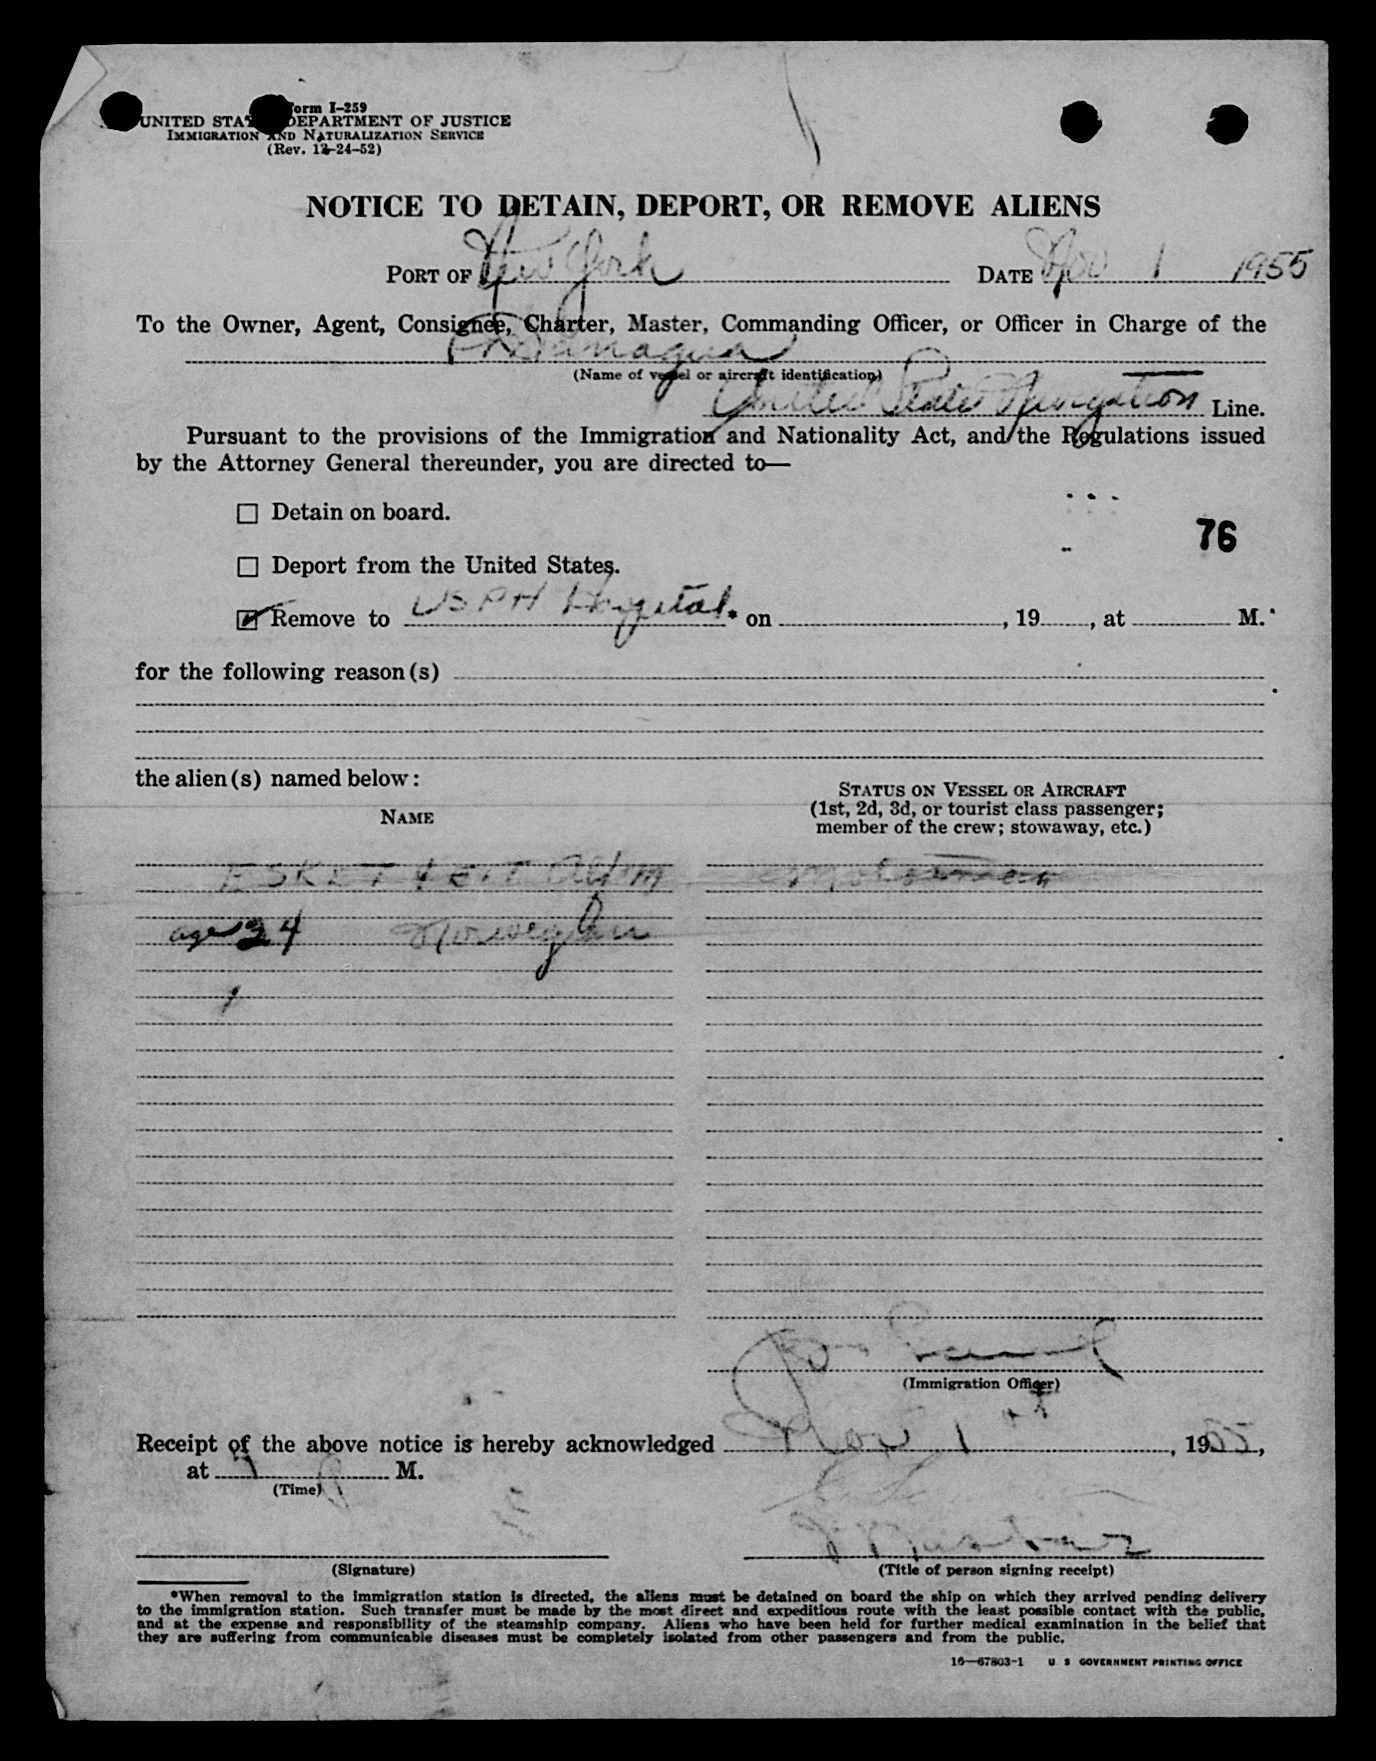 Form I-259
UNITED STATES DEPARTMENT OF JUSTICE
IMMIGRATION AND NATURALIZATION SERVICE
(Rev. 12-24-52)
NOTICE TO DETAIN, DEPORT, OR REMOVE ALIENS
PORT OF New York DATE Nov 1 1955
To the Owner, Agent, Consignee, Charter, Master, Commanding Officer, or Officer in Charge of the
Managua
(Name of vessel or aircraft identification)
United States Navigation Line.
Pursuant to the provisions of the Immigration and Nationality Act, and the Regulations issued
by the Attorney General thereunder, you are directed to—
☐ Detain on board.
76
☐ Deport from the United States.
☑ Remove to USPH Hospital* on , 19 , at M.
for the following reason(s)
the alien(s) named below:
NAME
STATUS ON VESSEL OR AIRCRAFT
(1st, 2d, 3d, or tourist class passenger;
member of the crew; stowaway, etc.)
motorman
age 24 Norwegian
1
(Immigration Officer)
Receipt of the above notice is hereby acknowledged Nov 1st, 1955,
at M.
(Time)
(Signature)
(Title of person signing receipt)
*When removal to the immigration station is directed, the aliens must be detained on board the ship on which they arrived pending delivery
to the immigration station. Such transfer must be made by the most direct and expeditious route with the least possible contact with the public,
and at the expense and responsibility of the steamship company. Aliens who have been held for further medical examination in the belief that
they are suffering from communicable diseases must be completely isolated from other passengers and from the public.
16—67803-1 U S GOVERNMENT PRINTING OFFICE